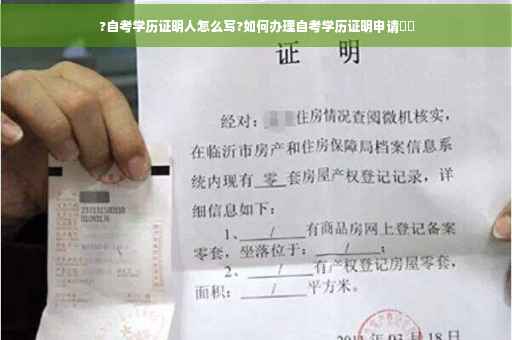 ?自考学历证明人怎么写?如何办理自考学历证明申请
证 明
经对：住房情况查阅微机核实，
在临沂市房产和住房保障局档案信息系
统内现有 零 套房屋产权登记记录，详
细信息如下：
1、 / 有商品房网上登记备案
零套，坐落位于： / ；
2、 / 有产权登记房屋零套，
面积： / 平方米。